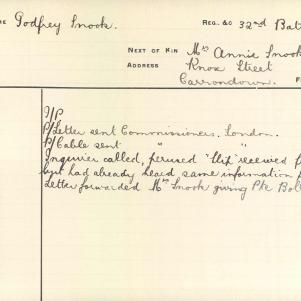 ME Godfrey Snook. REG. &C 32nd Bat
NEXT OF KIN Mrs Annie Snook
ADDRESS Knox Street
Carrondown. F
I/P
P/Letter sent Commissioners, London.
P/Cable sent " "
Inquirer called, perused "slip" received f
but had already heard same information f
Letter forwarded Mrs Snook giving Pte Bol